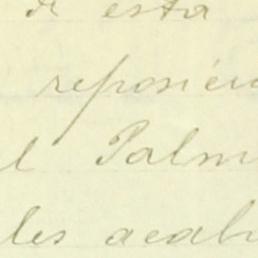 de esta
reposici
l Palm
les acab